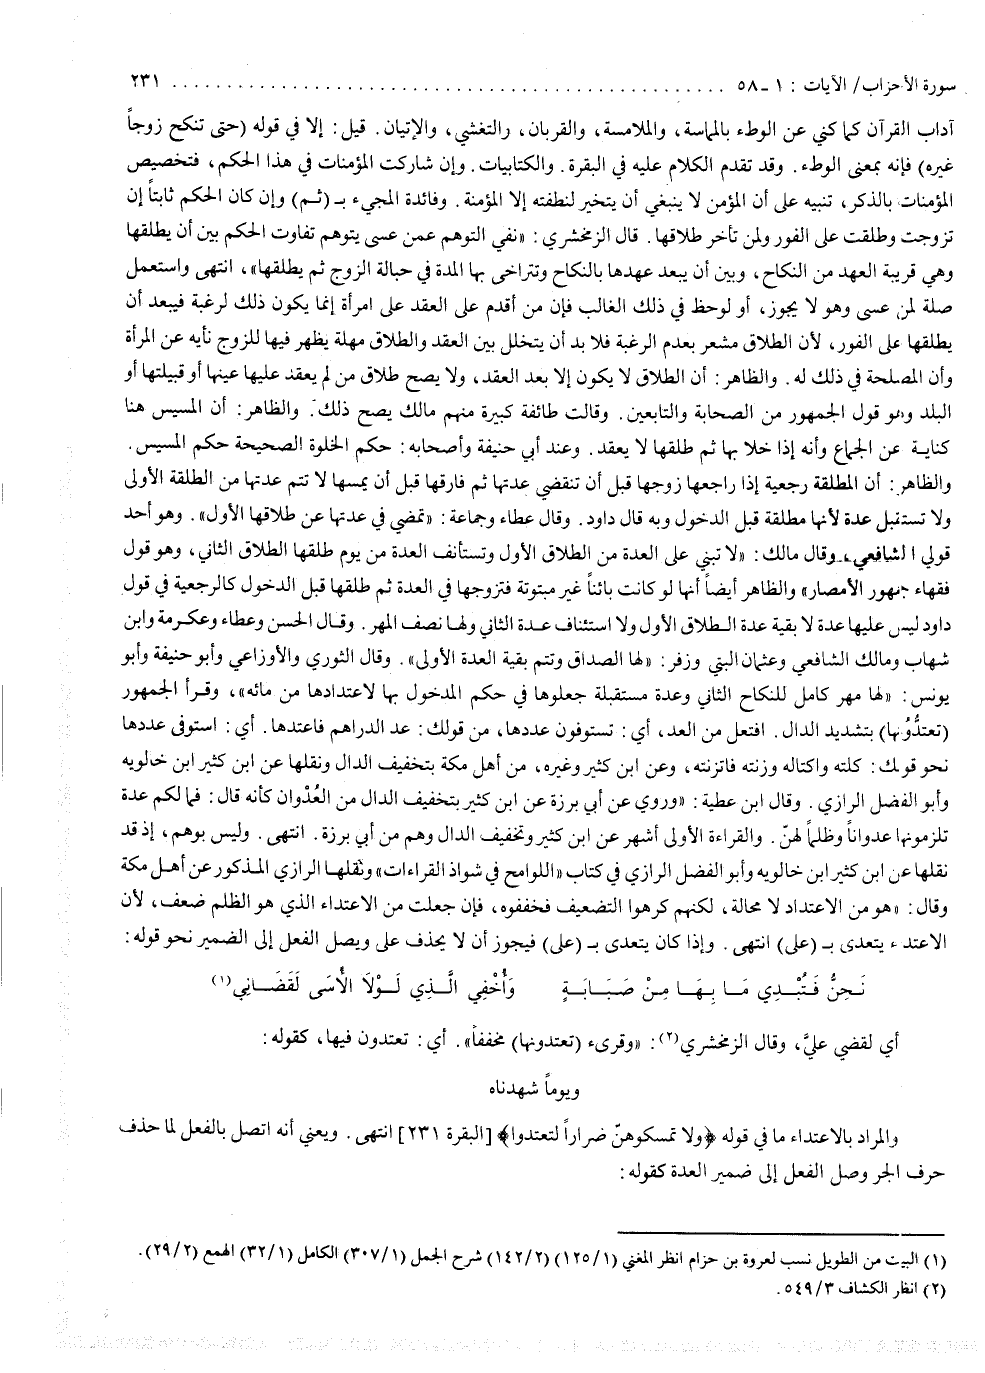 سورة الأحزاب/ الآيات : ١ ـ ٥٨ ........................................................ ٢٣١
آداب القرآن كما كني عن الوطء بالمماسة، والملامسة، والقربان، والتغشي، والإتيان. قيل: إلا في قوله (حتى تنكح زوجاً
غيره) فإنه بمعنى الوطء. وقد تقدم الكلام عليه في البقرة. والكتابيات. وإن شاركت المؤمنات في هذا الحكم، فتخصيص
المؤمنات بالذكر، تنبيه على أن المؤمن لا ينبغي أن يتخير لنطفته إلا المؤمنة. وفائدة المجيء بـ (ثم) وإن كان الحكم ثابتاً إن
تزوجت وطلقت على الفور ولمن تأخر طلاقها. قال الزمخشري: «نفي التوهم عمن عسى يتوهم تفاوت الحكم بين أن يطلقها
وهي قريبة العهد من النكاح، وبين أن يبعد عهدها بالنكاح وتتراخى بها المدة في حبالة الزوج ثم يطلقها»، انتهى واستعمل
صلة لمن عسى وهو لا يجوز، أو لوحظ في ذلك الغالب فإن من أقدم على العقد على امرأة إنما يكون ذلك لرغبة فيبعد أن
يطلقها على الفور، لأن الطلاق مشعر بعدم الرغبة فلا بد أن يتخلل بين العقد والطلاق مهلة يظهر فيها للزوج نأيه عن المرأة
وأن المصلحة في ذلك له. والظاهر: أن الطلاق لا يكون إلا بعد العقد، ولا يصح طلاق من لم يعقد عليها عينها أو قبيلتها أو
البلد وهو قول الجمهور من الصحابة والتابعين. وقالت طائفة كبيرة منهم مالك يصح ذلك. والظاهر: أن المسيس هنا
كناية عن الجماع وأنه إذا خلا بها ثم طلقها لا يعقد. وعند أبي حنيفة وأصحابه: حكم الخلوة الصحيحة حكم المسيس.
والظاهر: أن المطلقة رجعية إذا راجعها زوجها قبل أن تنقضي عدتها ثم فارقها قبل أن يمسها لا تتم عدتها من الطلقة الأولى
ولا تستقبل عدة لأنها مطلقة قبل الدخول وبه قال داود. وقال عطاء وجماعة: «تمضي في عدتها عن طلاقها الأول». وهو أحد
قولي الشافعي، وقال مالك: «لا تبني على العدة من الطلاق الأول وتستأنف العدة من يوم طلقها الطلاق الثاني، وهو قول
فقهاء جمهور الأمصار» والظاهر أيضاً أنها لو كانت بائناً غير مبتوتة فتزوجها في العدة ثم طلقها قبل الدخول كالرجعية في قول
داود ليس عليها عدة لا بقية عدة الطلاق الأول ولا استئناف عدة الثاني ولها نصف المهر. وقال الحسن وعطاء وعكرمة وابن
شهاب ومالك الشافعي وعثمان البتي وزفر: «لها الصداق وتتم بقية العدة الأولى». وقال الثوري والأوزاعي وأبو حنيفة وأبو
يونس: «لها مهر كامل للنكاح الثاني وعدة مستقبلة جعلوها في حكم المدخول بها لاعتدادها من مائه»، وقرأ الجمهور
(تعتدُّونها) بتشديد الدال. افتعل من العد، أي: تستوفون عددها، من قولك: عد الدراهم فاعتدها. أي: استوفى عددها
نحو قولك: كلته واكتاله وزنته فاتزنته، وعن ابن كثير وغيره، من أهل مكة بتخفيف الدال ونقلها عن ابن كثير ابن خالويه
وأبو الفضل الرازي. وقال ابن عطية: «وروي عن أبي برزة عن ابن كثير بتخفيف الدال من العُدْوان كأنه قال: فما لكم عدة
تلزمونها عدواناً وظلماً لهنّ. والقراءة الأولى أشهر عن ابن كثير وتخفيف الدال وهم من أبي برزة. انتهى. وليس بوهم، إذ قد
نقلها عن ابن كثير ابن خالويه وأبو الفضل الرازي في كتاب «اللوامح في شواذ القراءات» ونقلها الرازي المذكور عن أهل مكة
وقال: «هو من الاعتداد لا محالة، لكنهم كرهوا التضعيف فخففوه، فإن جعلت من الاعتداء الذي هو الظلم ضعف، لأن
الاعتداء يتعدى بـ (على) انتهى. وإذا كان يتعدى بـ (على) فيجوز أن لا يحذف على ويصل الفعل إلى الضمير نحو قوله:
نَحِنُّ فَتُبْدِي مَا بِهَا مِنْ صَبَابَةٍ وَأُخْفِي الَّذِي لَوْلَا الْأَسَى لَقَضَانِي(١)
أي لقضي عليّ، وقال الزمخشري(٢): «وقرىء (تعتدونها) مخففاً». أي: تعتدون فيها، كقوله:
ويوماً شهدناه
والمراد بالاعتداء ما في قوله ﴿ولا تمسكوهنّ ضراراً لتعتدوا﴾ [البقرة ٢٣١] انتهى. ويعني أنه اتصل بالفعل لما حذف
حرف الجر وصل الفعل إلى ضمير العدة كقوله:
(١) البيت من الطويل نسب لعروة بن حزام انظر المغني (١/ ١٢٥) (٢/ ١٤٢) شرح الجمل (١/ ٣٠٧) الكامل (١/ ٣٢) الهمع (٢/ ٢٩).
(٢) انظار الكشاف ٣/ ٥٤٩.